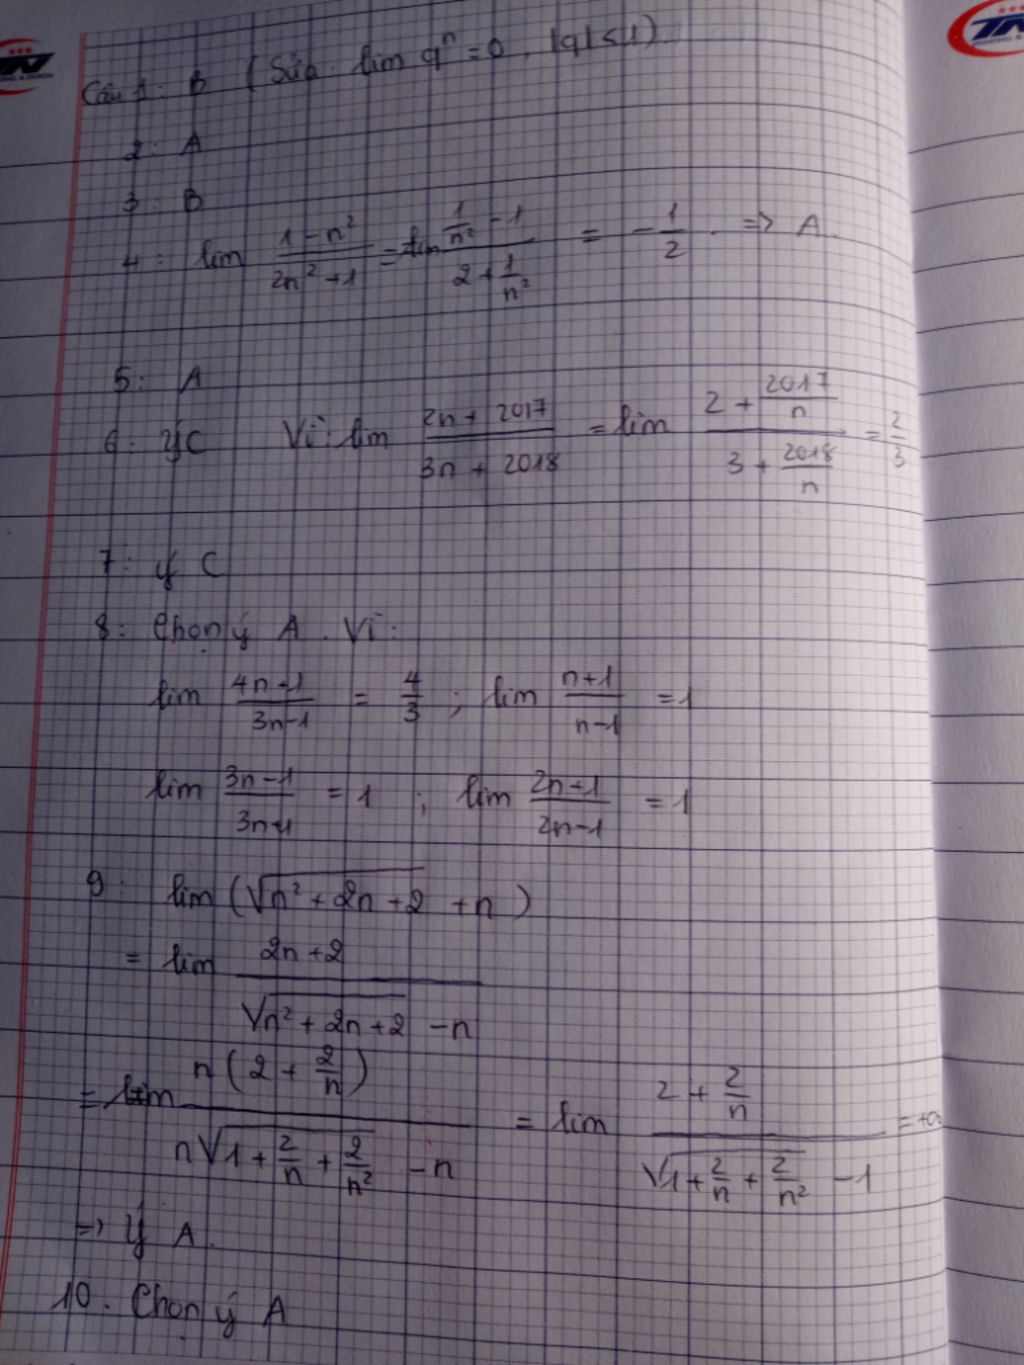 Câu 1: B (Sửa: lim qⁿ = 0, |q| < 1)
2: A
3: B
4: lim (1 - n²)/(2n² + 1) = lim (1/n² - 1)/(2 + 1/n²) = - 1/2 . => A.
5: A
6: Ý C Vì: lim (2n + 2017)/(3n + 2018) = lim (2 + 2017/n)/(3 + 2018/n) = 2/3
7: ý C
8: Chọn ý A. Vì:
lim (4n+1)/(3n-1) = 4/3 ; lim (n+1)/(n-1) = 1
lim (3n-1)/(3n+1) = 1 ; lim (2n+1)/(2n-1) = 1
9: lim (√(n² + 2n + 2) + n)
= lim (2n+2)/(√(n² + 2n + 2) - n)
= lim n(2 + 2/n)/(n√(1 + 2/n + 2/n²) - n) = lim (2 + 2/n)/(√(1 + 2/n + 2/n²) - 1) = +∞
=> Ý A.
10. Chọn ý A